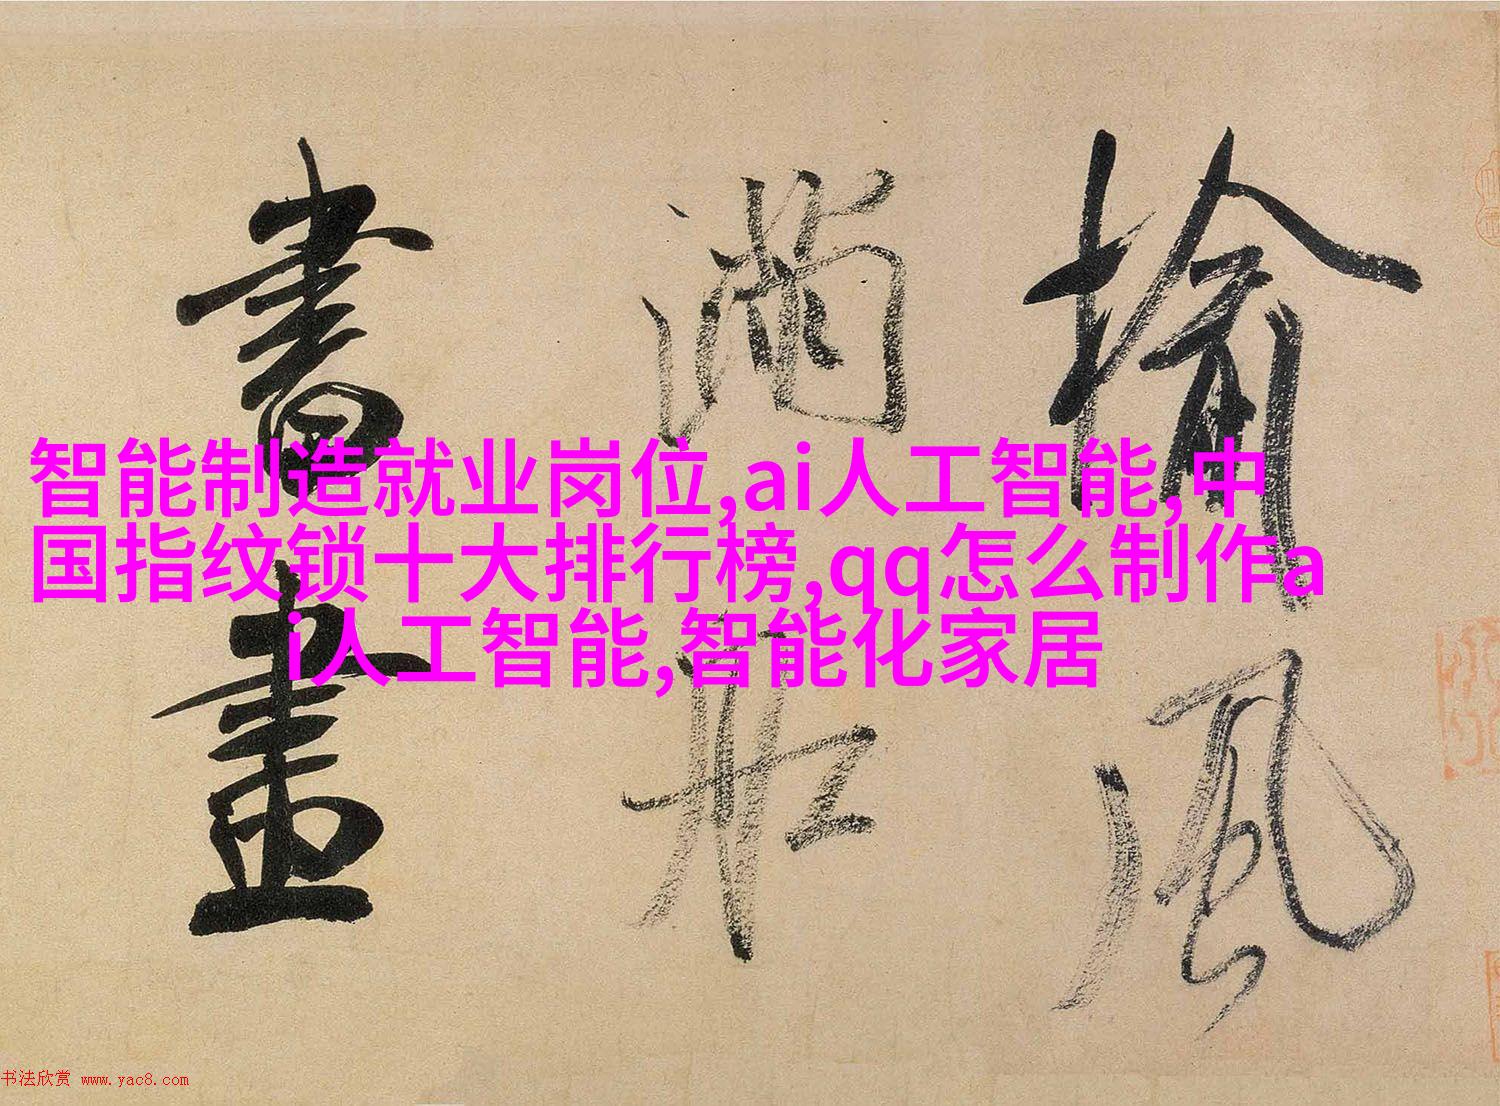 智能制造就业岗位,ai人工智能,中
国指纹锁十大排行榜,qq怎么制作a
i人工智能,智能化家居
榆風
滿船
書畫
书法欣赏 www.yac8.com